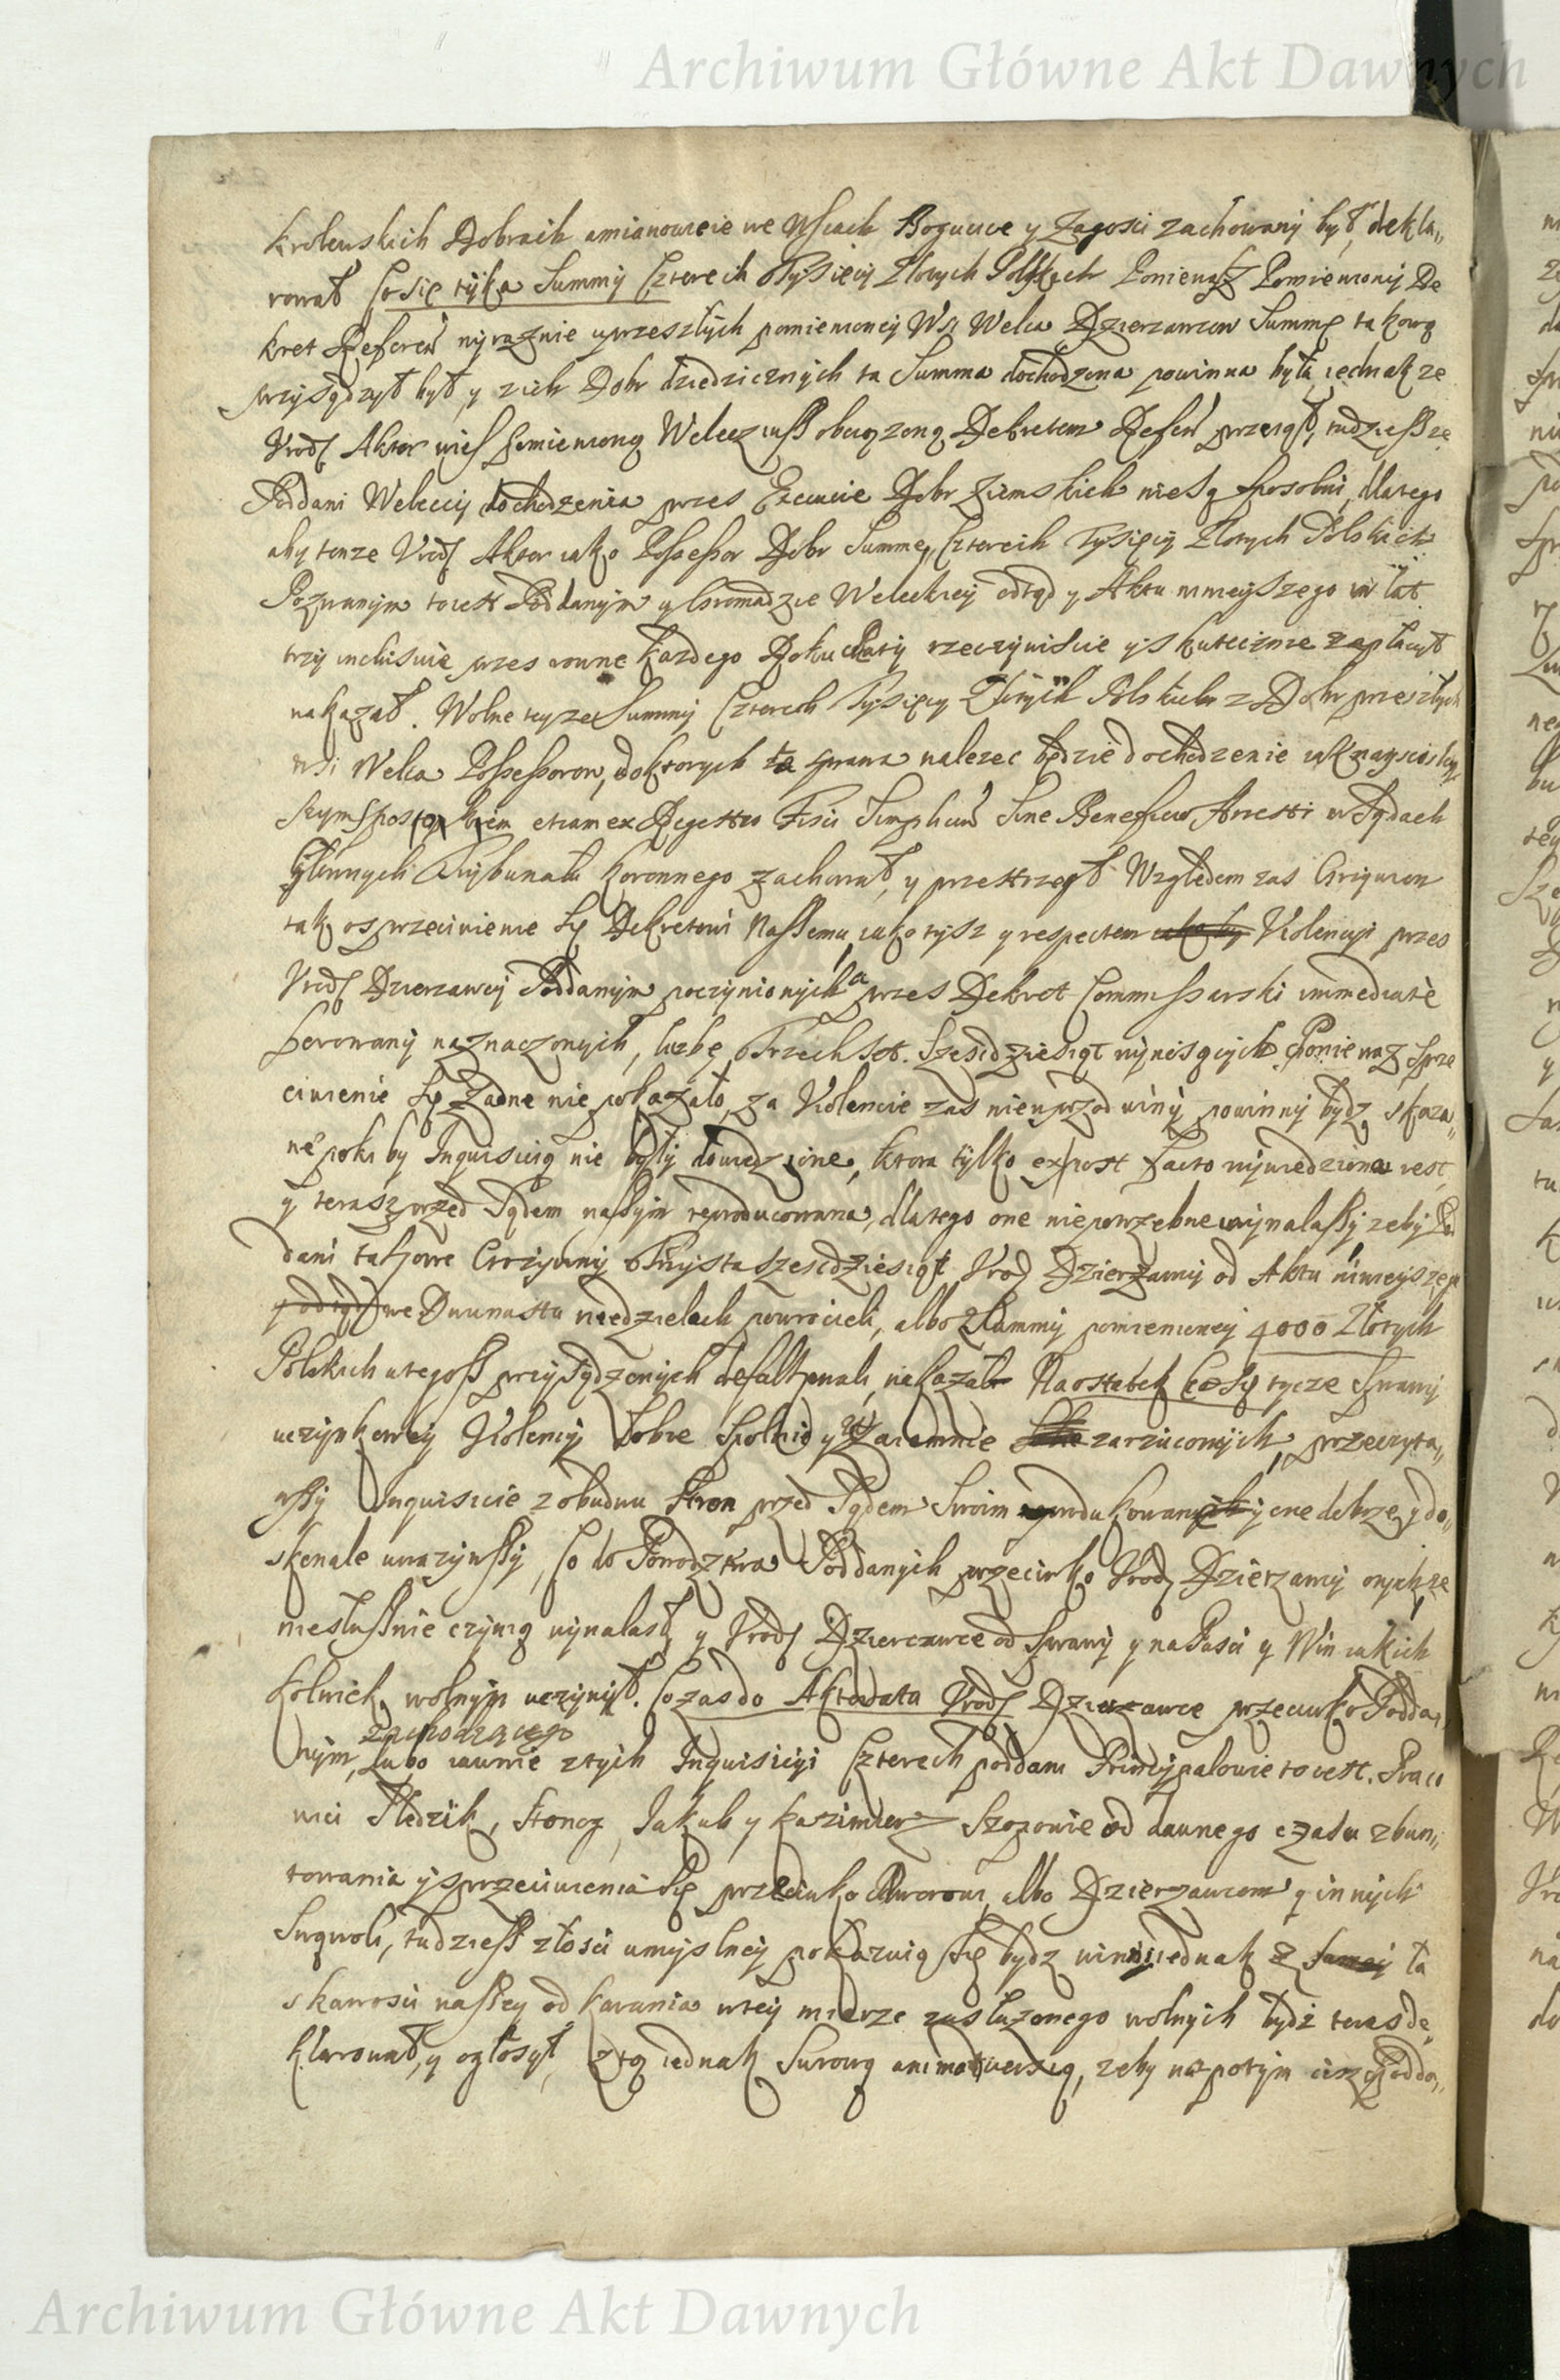 Archiwum Główne Akt Dawnych
Krolewskich Dobrach amianowicie we Wsiach Bogucice y Zagosci zachowany był, dekla„
rował Co się tycze Summy Czterech Tysięcy Złotych Polskich Ponieważ Pomieniony De
kret Referen wyraznie uprzeszłych pomienioney Wsi Welca Dzierzawcow Summę takową
przysądzył był, y zich Dobr dziedzicznych ta Summa dochodzona powinna była, iednakze
Urodz Aktor wies pomienioną Welecz iusz obciązoną Dekretem Referen przeiął, tudziesz ze
Poddani Weleccy dochodzenia przes Execucie Dobr Ziemskich niesą sposobni, dlatego
aby tenze Urodz Aktor iako Possessor Dobr Summę, Czterech Tysięcy Złotych Polskich
Poznanym toiest Poddanym y Gromadzie Weleckiey odtąd y Aktu ninieyszego w lat
trzy inclusivè przes rowne kazdego Roku Raty rzeczywiscie y skutecznie zapłacił
nakazał. Wolne teyze Summy Czterech Tysięcy Złotych Polskich z Dobr przeszłych
wsi Welca Possessorow, doktorych ta sprawa nalezec będzie dochodzenie iak nayscisley„
szym sposobem etiam ex Regestro Fisci Simplicium Sine Beneficio Arresti w Sądach
Głownych Trybunału Koronnego zachował, y przestrzegł. Względem zas Grzywien
tak osprzeciwienie się Dekretowi Naszemu, iako tysz y respectem Violencyi przes
Urodz Dzierzawcy Poddanym poczynionych a przes Dekret Commissarski immediatè
ferowany naznaczonych, liczbę Trzech Set. Szescdziesiąt wynosących. Ponie waz sprze
ciwienie się Zadne nie pokazało, za Violencie zas nieuprzod winy powinny bydz skaza„
ne poki by Inquisicią nie były dowiedzione, ktora tylko expost facto wywiedziona iest,
y terasz przed Sądem naszym reproducowana, dlatego one niepotrzebne wynalaszy zeby Pod
dani takowe Grzywny Trzysta szescdziesiąt Urodz Dzierzawcy od Aktu ninieyszego
we Dwunastu niedzielach powrocieli, albo z Summy pomienioney 4000 Złotych
Polskich utegosz przysądzonych defalkowali, nakazał. Naostatek Co się tycze Sprawy
uczynkowey Violency Sobie Spolnie y wzaiemnie zarzuconych, przeczyta„
wszy Inquisicie zobudwu Stron przed Sądem Swoim produkowane y one dobrze y do„
skonale uwazywszy, Co do Powodztwa Poddanych przeciwko Urodz Dzierzawcy onych, ze
niesłusznie czynią wynalasł, y Urodz Dzierzawce od Sprawy y napasci y Win iakich
kolwiek wolnym uczynił. Co zas do Aktoratu Urodz Dzierzawce przeciwko Podda„
zachodzącego
nym, Lubo iawnie z tych Inquisicyi Czterech poddani Principalowie toiest. Praco
wici Sledzik, Stonog, Jakub y Kazimierz Szozowie od dawnego czasu zbun„
towania y sprzeciwienia się przeciwko Dworowi, albo Dzierzawcom y innych
Swawoli, tudziesz złosci umyslney pokazuią się bydz winni iednak z ła
skawosci naszey od karania wtey mierze zasłuzonego wolnych bydz teras de„
klarował, y ogłosył, z tą iednak Surową animadversią, zeby napotym cisz Podda„
Archiwum Główne Akt Dawnych